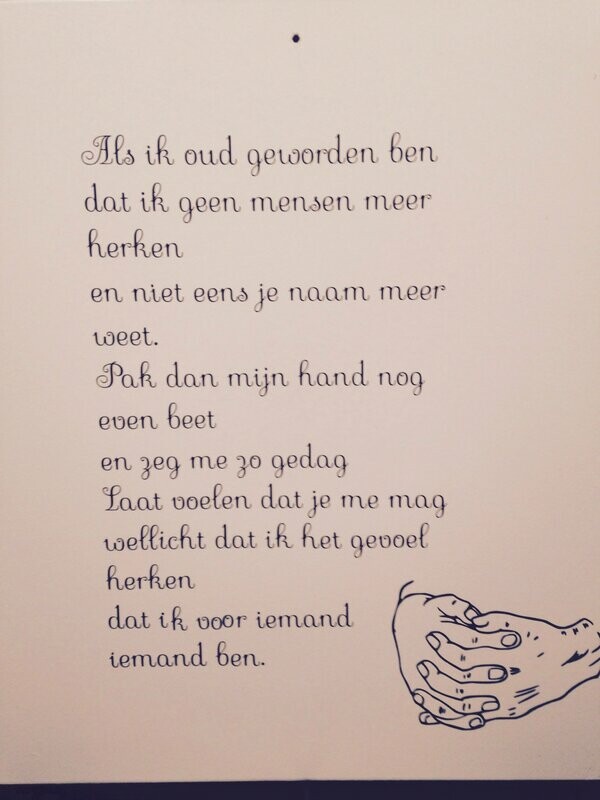 Als ik oud geworden ben
dat ik geen mensen meer
herken
en niet eens je naam meer
weet.
Pak dan mijn hand nog
even beet
en zeg me zo gedag
Laat voelen dat je me mag
wellicht dat ik het gevoel
herken
dat ik voor iemand
iemand ben.